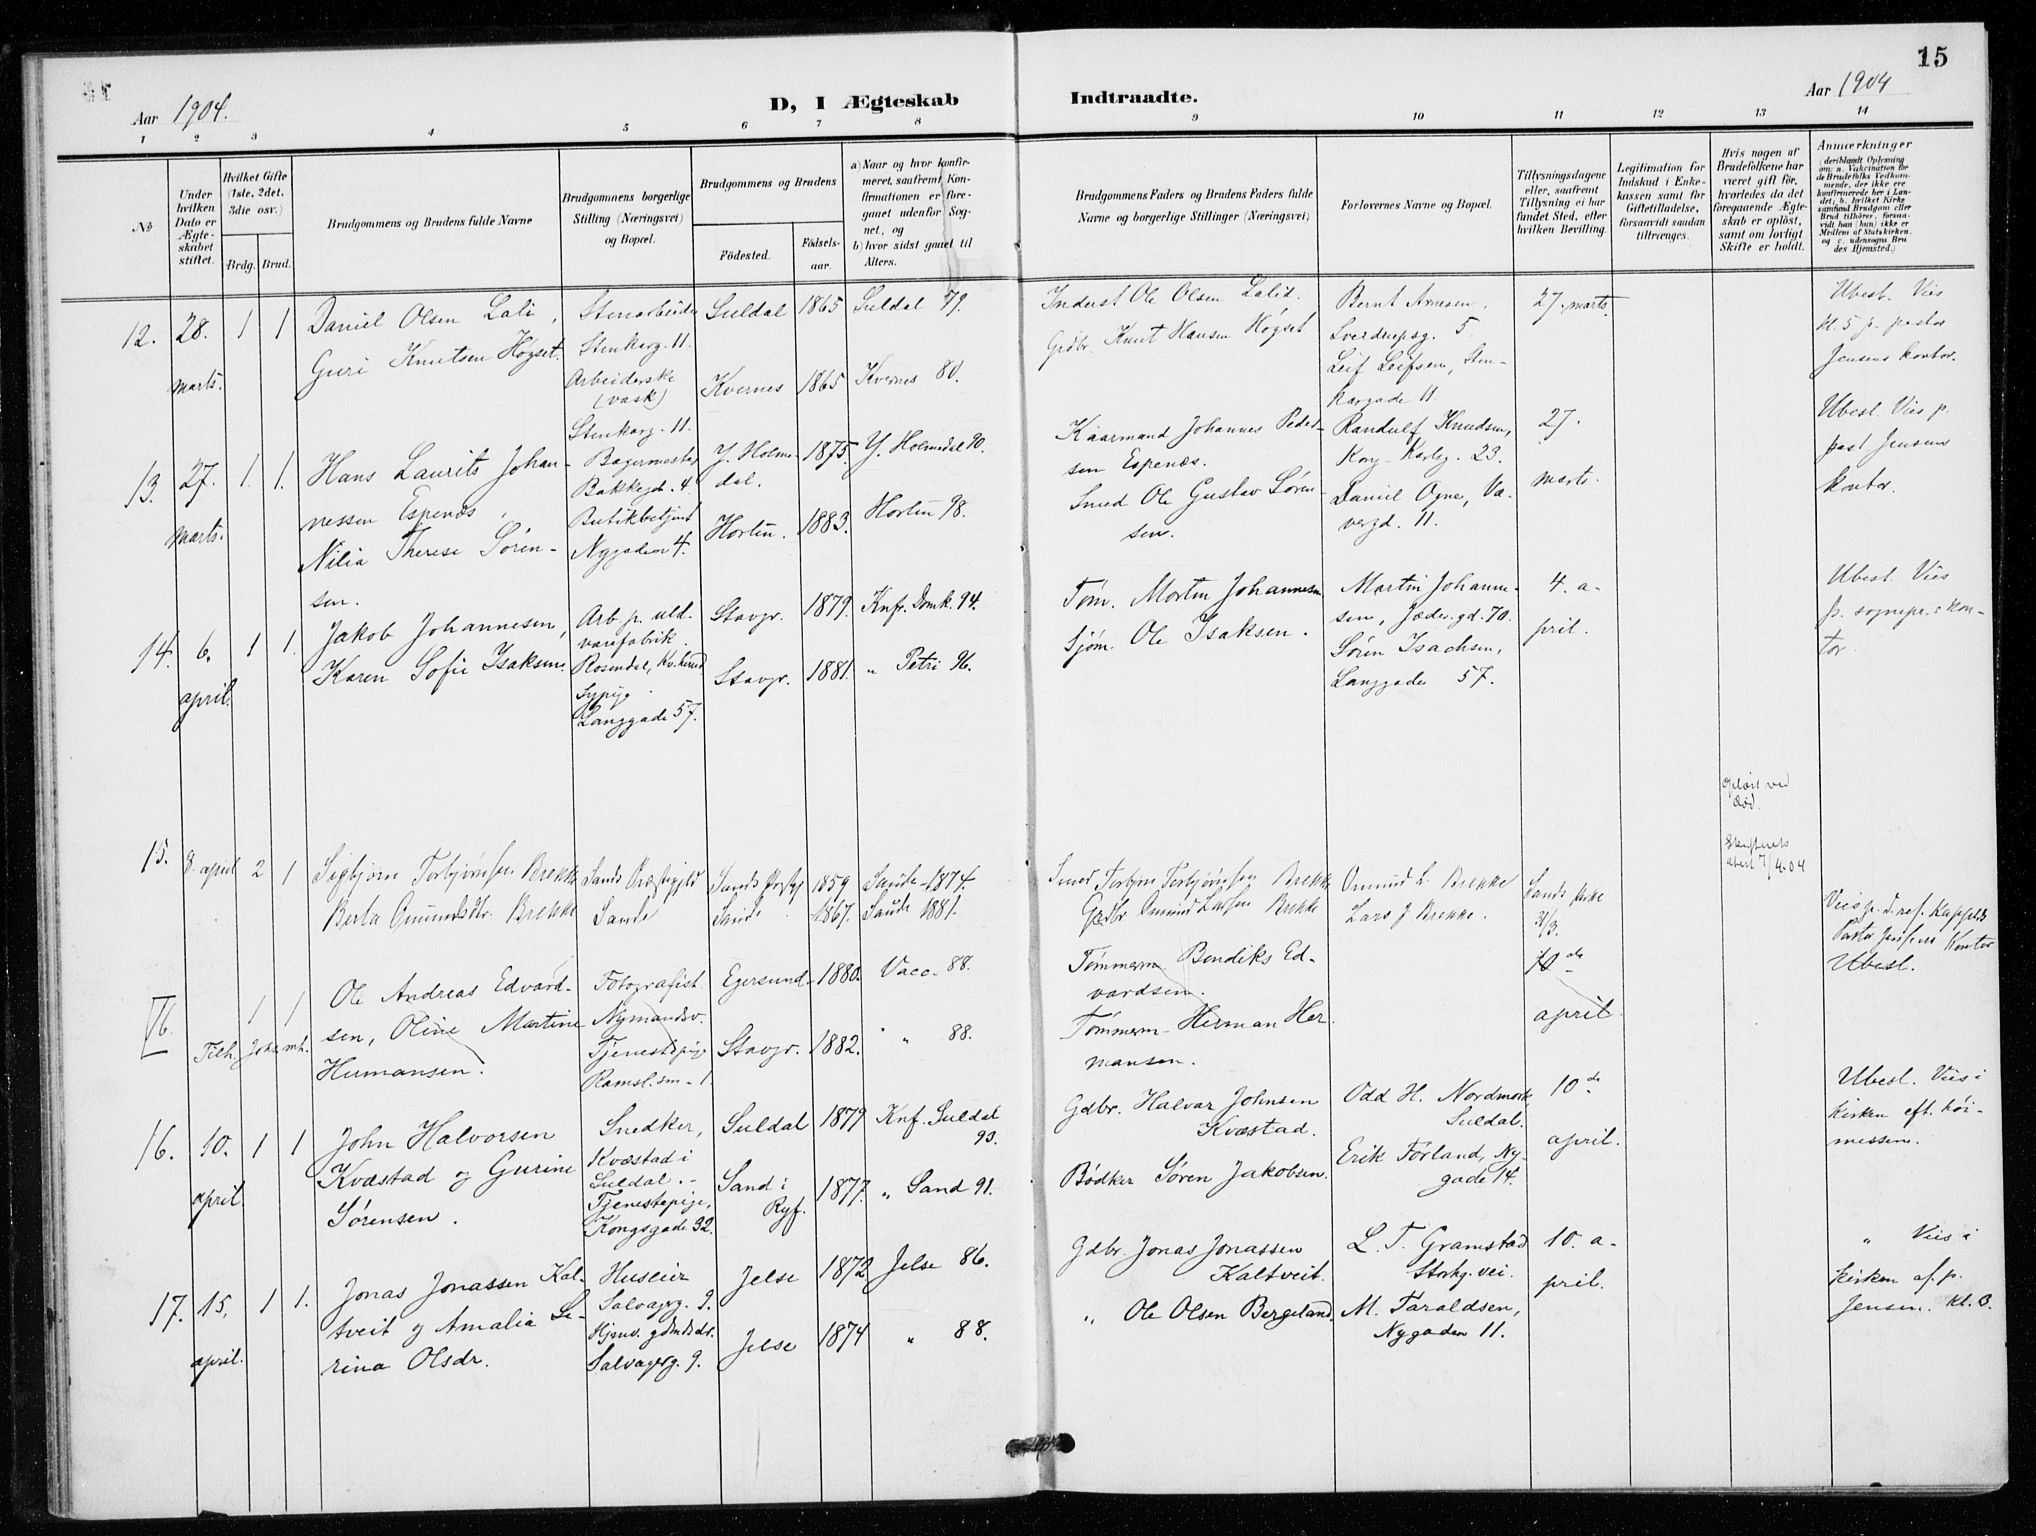 15
Aar 1904.
D, I Ægteskab Indtraadte.
Aar 1904
1 2 3 4 5 6 7 8 9 10 11 12 13 14
No
Under hvilken Dato er Ægteskabet stiftet.
Hvilket Gifte (1ste, 2det, 3die osv.)
Brdg. Brud.
Brudgommens og Brudens fulde Navne
Brudgommens borgerlige Stilling (Næringsvei) og Bopæl.
Brudgommens og Brudens
Födested.
Födselsaar.
a) Naar og hvor konfirmeret, saafremt Konfirmationen er foregaaet udenfor Sognet, og
b) hvor sidst gaaet til Alters.
Brudgommens Faders og Brudens Faders fulde Navne og borgerlige Stillinger (Næringsvei)
Forlovernes Navne og Bopæl.
Tillysningsdagene eller, saafremt Tillysning ei har fundet Sted, efter hvilken Bevilling.
Legitimation for Indskud i Enkekassen samt for Giftetilladelse, forsaavidt saadan tiltrænges.
Hvis nogen af Brudefolkene har været gift för, hvorledes da det foregaaende Ægteskab er oplöst, samt om lovligt Skifte er holdt.
Anmærkninger
(deriblandt Oplysning om: a. Vakcination for de Brudefolks Vedkommende, der ikke ere konfirmerede her i Landet; b. hvilket Kirkesamfund Brudgom eller Brud tilhörer, forsaavidt han (hun) ikke er Medlem af Statskirken, og c. udensogns Brudes Hjemsted.)
12. 28. marts. 1 1
Daniel Olsen Lali,
Guri Knutsen Høgset.
Stenarbeider
Stenkarg. 11.
Arbeiderske
(vask)
Stenkarg. 11.
Suldal 1865 Suldal 79.
Kvernes 1865 Kvernes 80.
Inderst Ole Olsen Lalid.
Grdbr. Knut Hansen Høgset
Bernt Arnesen.
Sverdrupsg. 5.
Leif Leifsen, Sten-
kargade 11.
27. marts.
Ubesl. Vies
kl. 5 p. pastor
Jensens kontor.
13. 27. marts. 1. 1.
Hans Laurits Johan-
nessen Espenæs,
Nilia Therese Søren-
sen.
Bagermester
Bakkegd. 4.
Butikbetjent
Nygaden 4.
Y. Holme-
dal. 1875. Y. Holmedal 90.
Horten. 1883. Horten 98.
Kaarmand Johannes Peder-
sen Espenæs.
Smed Ole Gustav Søren-
sen.
Randulf Knudsen,
Kong Karlsg. 23.
Daniel Ogne, Væ-
vergd. 11.
27.
marts.
Ubesl. Vies p.
past. Jensens
kontor.
14. 6. april. 1 1.
Jakob Johannesen,
Karen Sofie Isaksen.
Arb. p. uld-
varefabrik.
Rosendal,
Sypige.
Langgade 57.
Stavgr. 1879. Knf. Domk. 94.
Stavgr. 1881. „ Petri 96.
Tøm. Morten Johannesen
Sjøm. Ole Isaksen.
Martin Johanne-
sen, Jæder. gd. 70.
Søren Isachsen,
Langgade 57.
4. a-
pril.
Ubesl. Vies
p. sognepr.s kon-
tor.
15. 8. april 2 1
Sigbjørn Torbjørnsen Brekke
Berta Omundsdtr. Brekke
Sands Præstegjeld
Sande
Sands Prgtgj 1859 Saude 1874.
Saude 1867. Saude 1881.
Smed Torbjørn Torbjørnsen Brekke
Grdbr Omund Larsen Brekke
Omund L. Brekke
Lars J Brekke.
Sands kirke
31/3.
Opløst ved
død.
Skifterets
attest 7/4.04
Vies p. d. ref. Kappels
Pastor Jensens Kontor
Ubesl.
16. Tilh. Joh. mh. 1 1
Ole Andreas Edvard-
sen, Oline Martine
Hermansen.
Fotografist.
Nymandsv.
Tjenestepige
Ramsl. sm. 1.
Egersund 1880. Vacc. 88.
Stavgr. 1882. „ 88.
Tømmerm. Bendiks Ed-
vardsen.
Tømmerm. Herman Her-
mansen.
10de
april.
16. 10. april 1 1
John Halvorsen
Kvæstad og Gurine
Sørensen.
Snedker,
Kvæstad i
Suldal.-
Tjenestepige,
Kongsgade 92.
Suldal 1879 Knf. Suldal
93.
Sand i
Ryf. 1877. „ Sand 91.
Gdbr. Halvar Johnsen
Kvæstad.
Bødker Søren Jakobsen.
Odd H. Nordmork
Suldal.
Erik Førland, Ny-
gade 14.
10de
april.
Ubesl. Vies i
kirken eft. høi-
messen.
17. 15. april. 1 1.
Jonas Jonassen Kal-
tveit og Amalia Se-
rina Olsdr.
Huseier
Salvagerg. 9.
Hjemv. gdmdsdr.
Salvagerg. 9.
Jelse 1872 Jelse 86.
Jelse 1874 „ 88.
Gdbr. Jonas Jonassen
Kaltveit.
„ Ole Olsen Bergeland.
L. T. Gramstad
Storhg. vei.
M. Taraldsen,
Nygaden 11.
10. a-
pril.
„ Vies i
kirken af p.
Jensen. kl. 8.